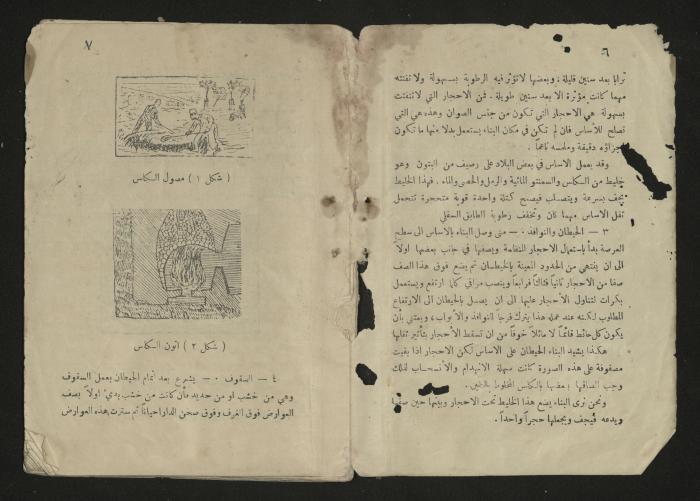 ٦
ترابا بعد سنين قليلة. وبعضها لا تؤثر فيه الرطوبة بسهولة ولا تفتته
مهما كانت مؤثرة الا بعد سنين طويلة. فمن الاحجار التي لا تتفتت
بسهولة هي الاحجار التي تكون من جنس الصوان وهذه هي التي
تصلح للأساس فان لم تكن في مكان البناء يستعمل بدلا منها ما تكون
اجزاؤه دقيقة وملمسه ناعماً.
وقد يعمل الاساس في بعض البلاد على رصيف من البتون وهو
خليط من الكاس والسمنتو المائية والرمل والحصى والماء. فهذا الخليط
يجف بسرعة ويتصلب فيصبح كتلة واحدة قوية متحجرة تتحمل
ثقل الاساس مهما كان وتخفف رطوبة الطابق السفلي
٣ — الحيطان والنوافذ. — متى وصل البناء بالاساس الى سطح
العرصة بدأ باستعمال الاحجار المنتظمة ويصفها في جانب بعضها اولاً
الى ان ينتهي من الحدود المعينة بالخيطان ثم يضع فوق هذا الصف
صفا من الاحجار ثانياً فثالثاً فرابعاً وينصب مراقي كلما ارتفع ويستعمل
بكرات لتناول الأحجار عليها الى ان يصل بالحيطان الى الارتفاع
المطلوب لكنه عند عمله هذا يترك فرجا للنوافذ والأبواب، ويعتني بأن
يكون كل حائط قائماً لا مائلا خوفاً من ان تسقط الأحجار بتأثير ثقلها
هكذا يشيد البناء الحيطان على الاساس لكن الاحجار اذا بقيت
مصفوفة على هذه الصورة كانت سهلة الانهدام والانسحاب لذلك
وجب الصاقها ببعضها بالكاس المخلوط بالطين.
ونحن نرى البناء يضع هذا الخليط تحت الاحجار وبينها حين صفها
ويدعه فيجف ويجعلها حجراً واحداً.
٧
( شكل ١ ) مصول الكاس
( شكل ٢ ) اتون الكاس
٤ — السقوف. — يشرع بعد اتمام الحيطان بعمل السقوف
وهي من خشب او من حديد فأن كانت من خشب يدىء اولاً بصف
العوارض فوق الغرف وفوق صحن الدار احيانا ثم سترت هذه العوارض